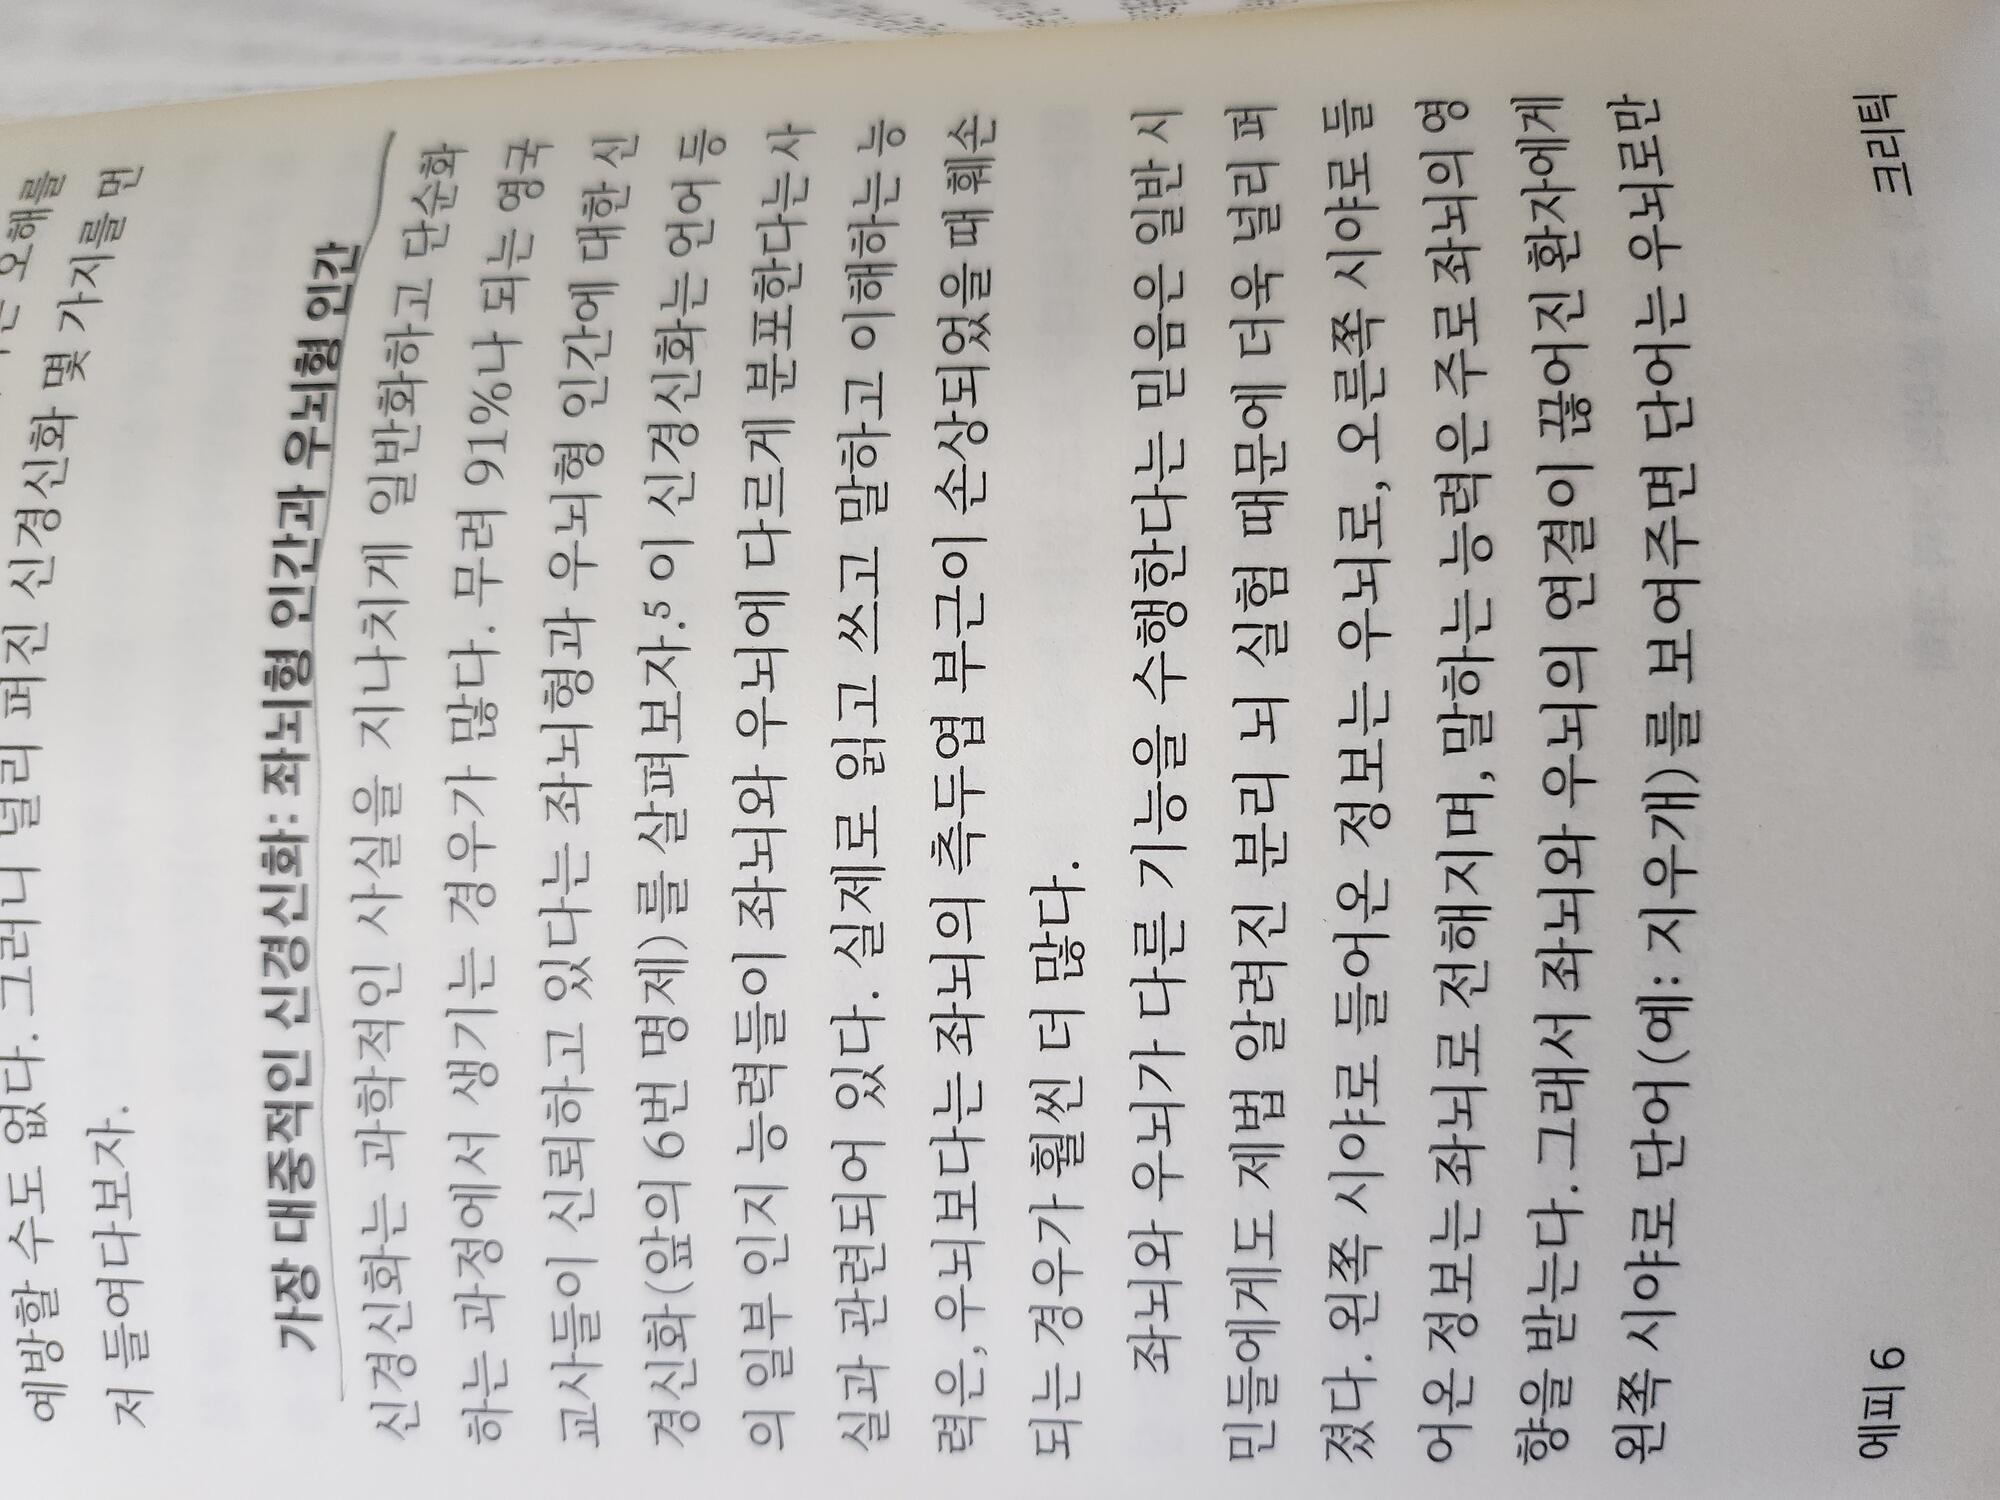 오해를
예방할 수도 없다. 그러니 널리 퍼진 신경신화 몇 가지를 먼
저 들여다보자.
가장 대중적인 신경신화: 좌뇌형 인간과 우뇌형 인간
신경신화는 과학적인 사실을 지나치게 일반화하고 단순화
하는 과정에서 생기는 경우가 많다. 무려 91%나 되는 영국
교사들이 신뢰하고 있다는 좌뇌형과 우뇌형 인간에 대한 신
경신화(앞의 6번 명제)를 살펴보자.5 이 신경신화는 언어 등
의 일부 인지 능력들이 좌뇌와 우뇌에 다르게 분포한다는 사
실과 관련되어 있다. 실제로 읽고 쓰고 말하고 이해하는 능
력은, 우뇌보다는 좌뇌의 측두엽 부근이 손상되었을 때 훼손
되는 경우가 훨씬 더 많다.
좌뇌와 우뇌가 다른 기능을 수행한다는 믿음은 일반 시
민들에게도 제법 알려진 분리 뇌 실험 때문에 더욱 널리 퍼
졌다. 왼쪽 시야로 들어온 정보는 우뇌로, 오른쪽 시야로 들
어온 정보는 좌뇌로 전해지며, 말하는 능력은 주로 좌뇌의 영
향을 받는다. 그래서 좌뇌와 우뇌의 연결이 끊어진 환자에게
왼쪽 시야로 단어(예: 지우개)를 보여주면 단어는 우뇌로만
에피 6
크리틱